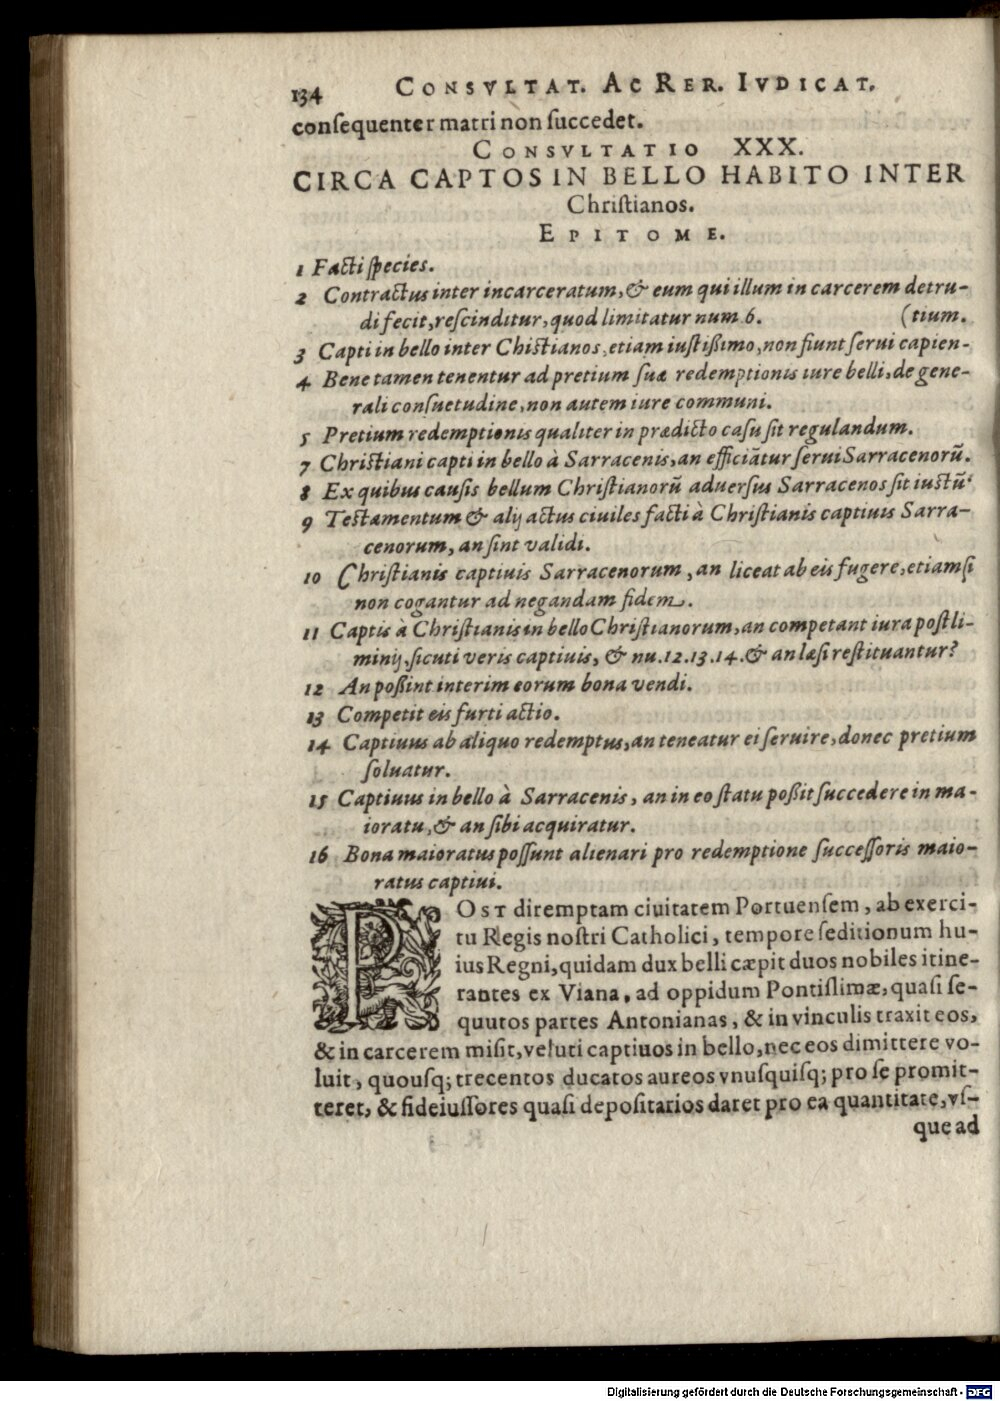 134 CONSVLTAT. AC RER. IVDICAT.
conſequenter matri non ſuccedet.
CONSVLTATIO XXX.
CIRCA CAPTOS IN BELLO HABITO INTER
Chriſtianos.
EPITOME.
1 Facti ſpecies.
2 Contractus inter incarceratum, & eum qui illum in carcerem detru-
di fecit, reſcinditur, quod limitatur num 6. (tium.
3 Capti in bello inter Chiſtianos, etiam iuſtißimo, non fiunt ſerui capien-
4 Bene tamen tenentur ad pretium ſuæ redemptionis iure belli, de gene-
rali conſuetudine, non autem iure communi.
5 Pretium redemptionis qualiter in prædicto caſu ſit regulandum.
7 Chriſtiani capti in bello à Sarracenis, an efficiātur ſerui Sarracenorū.
8 Ex quibus cauſis bellum Chriſtianorū aduerſus Sarracenos ſit iuſtū.
9 Teſtamentum & alij actus ciuiles facti à Chriſtianis captiuis Sarra-
cenorum, an ſint validi.
10 Chriſtianis captiuis Sarracenorum, an liceat ab eis fugere, etiamſi
non cogantur ad negandam fidem.
11 Captis à Chriſtianis in bello Chriſtianorum, an competant iura poſtli-
minij, ſicuti veris captiuis, & nu. 12. 13. 14. & an læſi reſtituantur?
12 An poßint interim eorum bona vendi.
13 Competit eis furti actio.
14 Captiuus ab aliquo redemptus, an teneatur ei ſeruire, donec pretium
ſoluatur.
15 Captiuus in bello à Sarracenis, an in eo ſtatu poßit ſuccedere in ma-
ioratu, & an ſibi acquiratur.
16 Bona maioratus poſſunt alienari pro redemptione ſucceſſoris maio-
ratus captiui.
POST diremptam ciuitatem Portuenſem, ab exerci-
tu Regis noſtri Catholici, tempore ſeditionum hu-
ius Regni, quidam dux belli cæpit duos nobiles itine-
rantes ex Viana, ad oppidum Pontiſlimæ, quaſi ſe-
quutos partes Antonianas, & in vinculis traxit eos,
& in carcerem miſit, veluti captiuos in bello, nec eos dimittere vo-
luit, quouſq; trecentos ducatos aureos vnuſquiſq; pro ſe promit-
teret, & fideiuſſores quaſi depoſitarios daret pro ea quantitate, vſ-
que ad
Digitalisierung gefördert durch die Deutsche Forschungsgemeinschaft - DFG